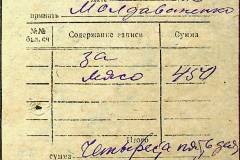 принять Молдаваненко
№№ Содержание записи Сумма
бал. сч
за
мясо 450
Итого
сумма Четыреста пять дес